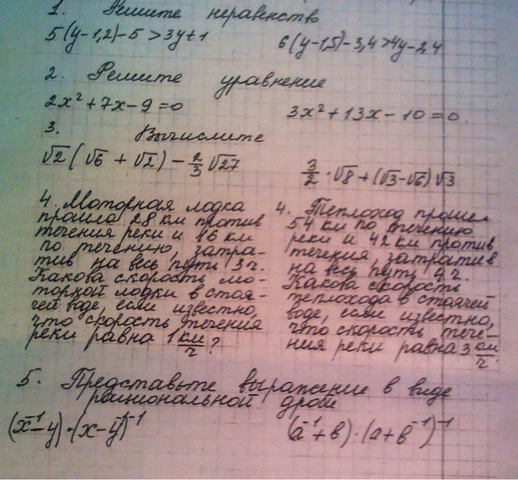 1. Решите неравенств
5(y-1,2)-5>3y+1
6(y-1,5)-3,4>4y-2,4
2. Решите уравнение
2x²+7x-9=0
3x²+13x-10=0.
3. Вычислите
√2(√6+√2)-2/3√27
3/2·√8+(√3-√6)√3
4. Моторная лодка
прошла 28 км против
течения реки и 16 км
по течению, затра-
тив на весь путь 3ч.
Какова скорость мо-
торной лодки в стоя-
чей воде, если известно,
что скорость течения
реки равна 1 км/ч?
4. Теплоход прошел
54 км по течению
реки и 42 км против
течения, затратив
на весь путь 4ч.
Какова скорость
теплохода в стоячей
воде, если известно,
что скорость тече-
ния реки равна 3 км/ч.
5. Представьте выражение в виде
рациональной дроби
(x⁻¹-y)·(x-y⁻¹)⁻¹
(a⁻¹+b)·(a+b⁻¹)⁻¹